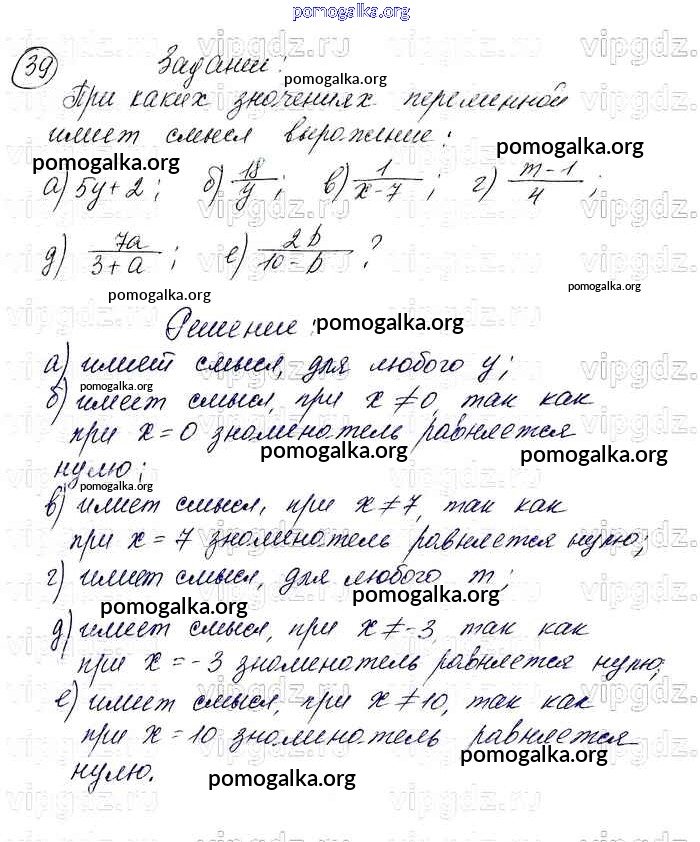 pomogalka.org
39 Задание:
pomogalka.org
При каких значениях переменной
имеет смысл выражение:
pomogalka.org pomogalka.org
а) 5y + 2; б) 18/y; в) 1/(x-7); г) (m-1)/4;
д) 7a/(3+a); е) 2b/(10-b)?
pomogalka.org pomogalka.org
Решение:
pomogalka.org
а) имеет смысл, для любого y;
pomogalka.org
б) имеет смысл, при x ≠ 0, так как
при x = 0 знаменатель равняется
pomogalka.org pomogalka.org
нулю;
pomogalka.org
в) имеет смысл, при x ≠ 7, так как
при x = 7 знаменатель равняется нулю;
г) имеет смысл, для любого m;
pomogalka.org pomogalka.org
д) имеет смысл, при x ≠ -3, так как
при x = -3 знаменатель равняется нулю;
е) имеет смысл, при x ≠ 10, так как
при x = 10 знаменатель равняется
нулю.
pomogalka.org pomogalka.org
vipgdz.ru